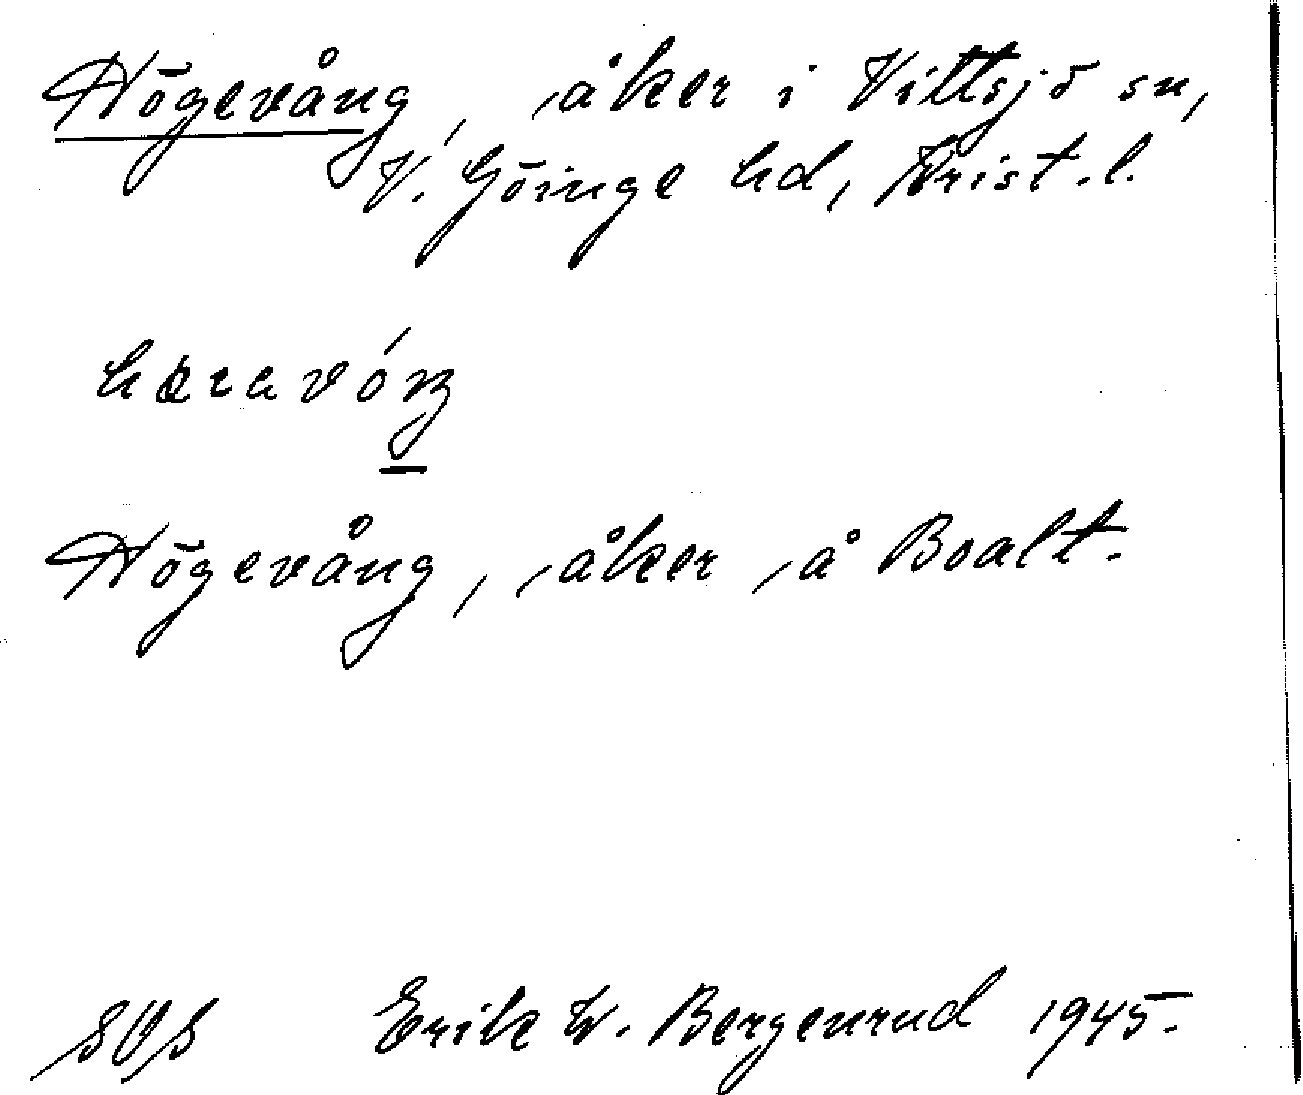 Högevång, åker i Vittsjö sn,
V. Göinge hd, Krist. l.
Högevång, åker å Boalt.
SOS Erik W. Bergenrud 1945.